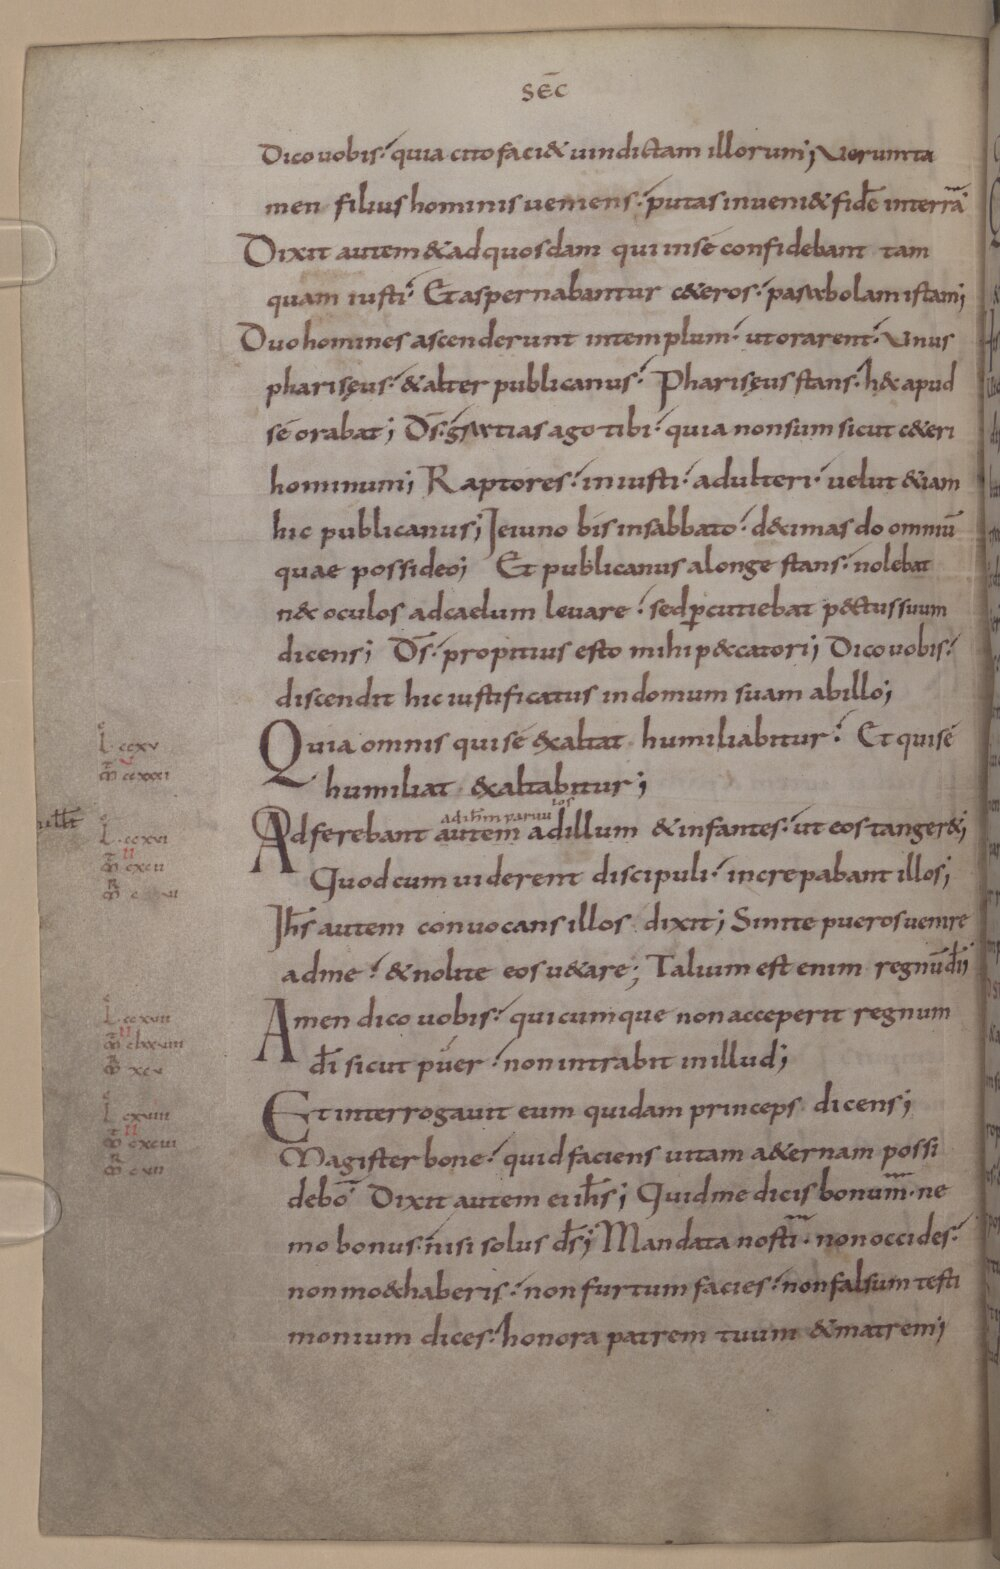 SEC̄
Dico uobis· quia cito faci& uindictam illorum; Uerumta
men filius hominis ueniens· putas inueni& fidē in terrā·
Dixit autem & ad quosdam qui in sé confidebant tam
quam iusti· Et aspernabantur c&eros· parabolam istam;
Duo homines ascenderunt in templum· ut orarent· Unus
pharisęus· & alter publicanus· Pharisęus stans· h& apud
sé orabat; D̄s· gratias ago tibi· quia non sum sicut c&eri
hominum; Raptores· iniusti· adulteri· uelut &iam
hic publicanus; Jeiuno bis in sabbato· d&imas do omniū
quae possideo; Et publicanus a longe stans· nolebat
n& oculos ad caelum leuare· sed ꝑcutiebat p&tus suum
dicens; D̄s· propitius esto mihi p&catori; Dico uobis·
discendit hic iustificatus in domum suam ab illo;
Quia omnis qui sé exaltat humiliabitur· Et qui sé
humiliat exaltabitur;
ad ihm paruu
los
Adferebant autem ad illum & infantes· ut eos tanger&;
Quod cum uiderent discipuli· increpabant illos;
Jh̄s autem conuocans illos dixit; Sinite pueros uenire
ad me· & nolite eos u&are; Talium est enim regnū d̄i
Amen dico uobis· quicumque non acceperit regnum
d̄i sicut puer· non intrabit in illud;
Et interrogauit eum quidam princeps dicens;
Magister bone· quid faciens uitam a&ernam possi
debo· Dixit autem ei ih̄s; Quid me dicis bonum· ne
mo bonus· nisi solus d̄s; Mandata nosti· non occides·
non mo&haberis· non furtum facies· non falsum testi
monium dices· honora patrem tuum & matrem;
L ccxv
m̄ ccxxxi
L ccxvi
m̄ cxcii
L ccxvii
m̄ clxxviii
m̄ xcv
L cxviii
m̄ cxciii
m̄ cvii